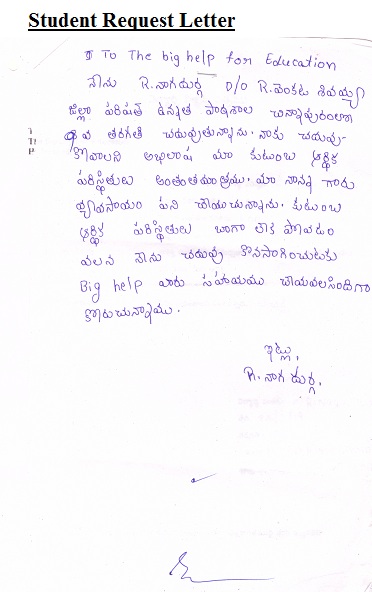 Student Request Letter
To The big help for Education
నేను R.నాగదుర్గ D/O R.వెంకట శివయ్య
జిల్లా పరిషత్ ఉన్నత పాఠశాల చిన్నాపురంలో
వ తరగతి చదువుతున్నాను. నాకు చదువు-
కోవాలని అభిలాష మా కుటుంబ ఆర్థిక
పరిస్థితులు అంతంతమాత్రము. మా నాన్న గారు
వ్యవసాయం పని చేయుచున్నారు. కుటుంబ
ఆర్థిక పరిస్థితులు బాగా లేక పోవడం
వలన నేను చదువు కొనసాగించుటకు
Big help వారు సహాయము చేయవలసిందిగా
కోరుచున్నాము.
ఇట్లు,
R. నాగ దుర్గ.